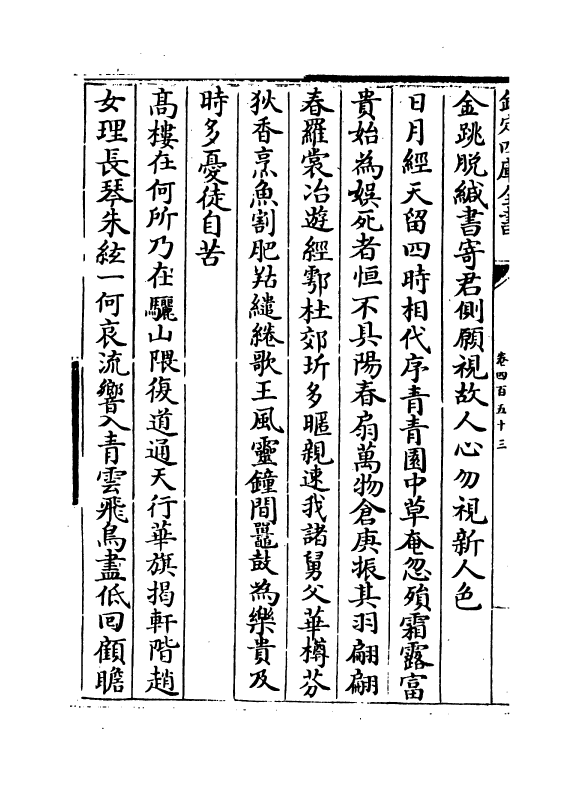 欽定四庫全書
卷四百五十三
金跳脫緘書寄君側願視故人心勿視新人色
日月經天留四時相代序青青園中草奄忽殞霜露富
貴始為娛死者恒不具陽春扇萬物倉庚振其羽翩翩
春羅裳冶遊經鄠杜郊圻多暱親速我諸舅父華樽芬
狄香烹魚割肥羜繾綣歌王風靈鐘間鼉鼓為樂貴及
時多憂徒自苦
髙樓在何所乃在驪山隈復道通天行華旗揭軒階趙
女理長琴朱絃一何哀流響入青雲飛鳥盡低回顧瞻